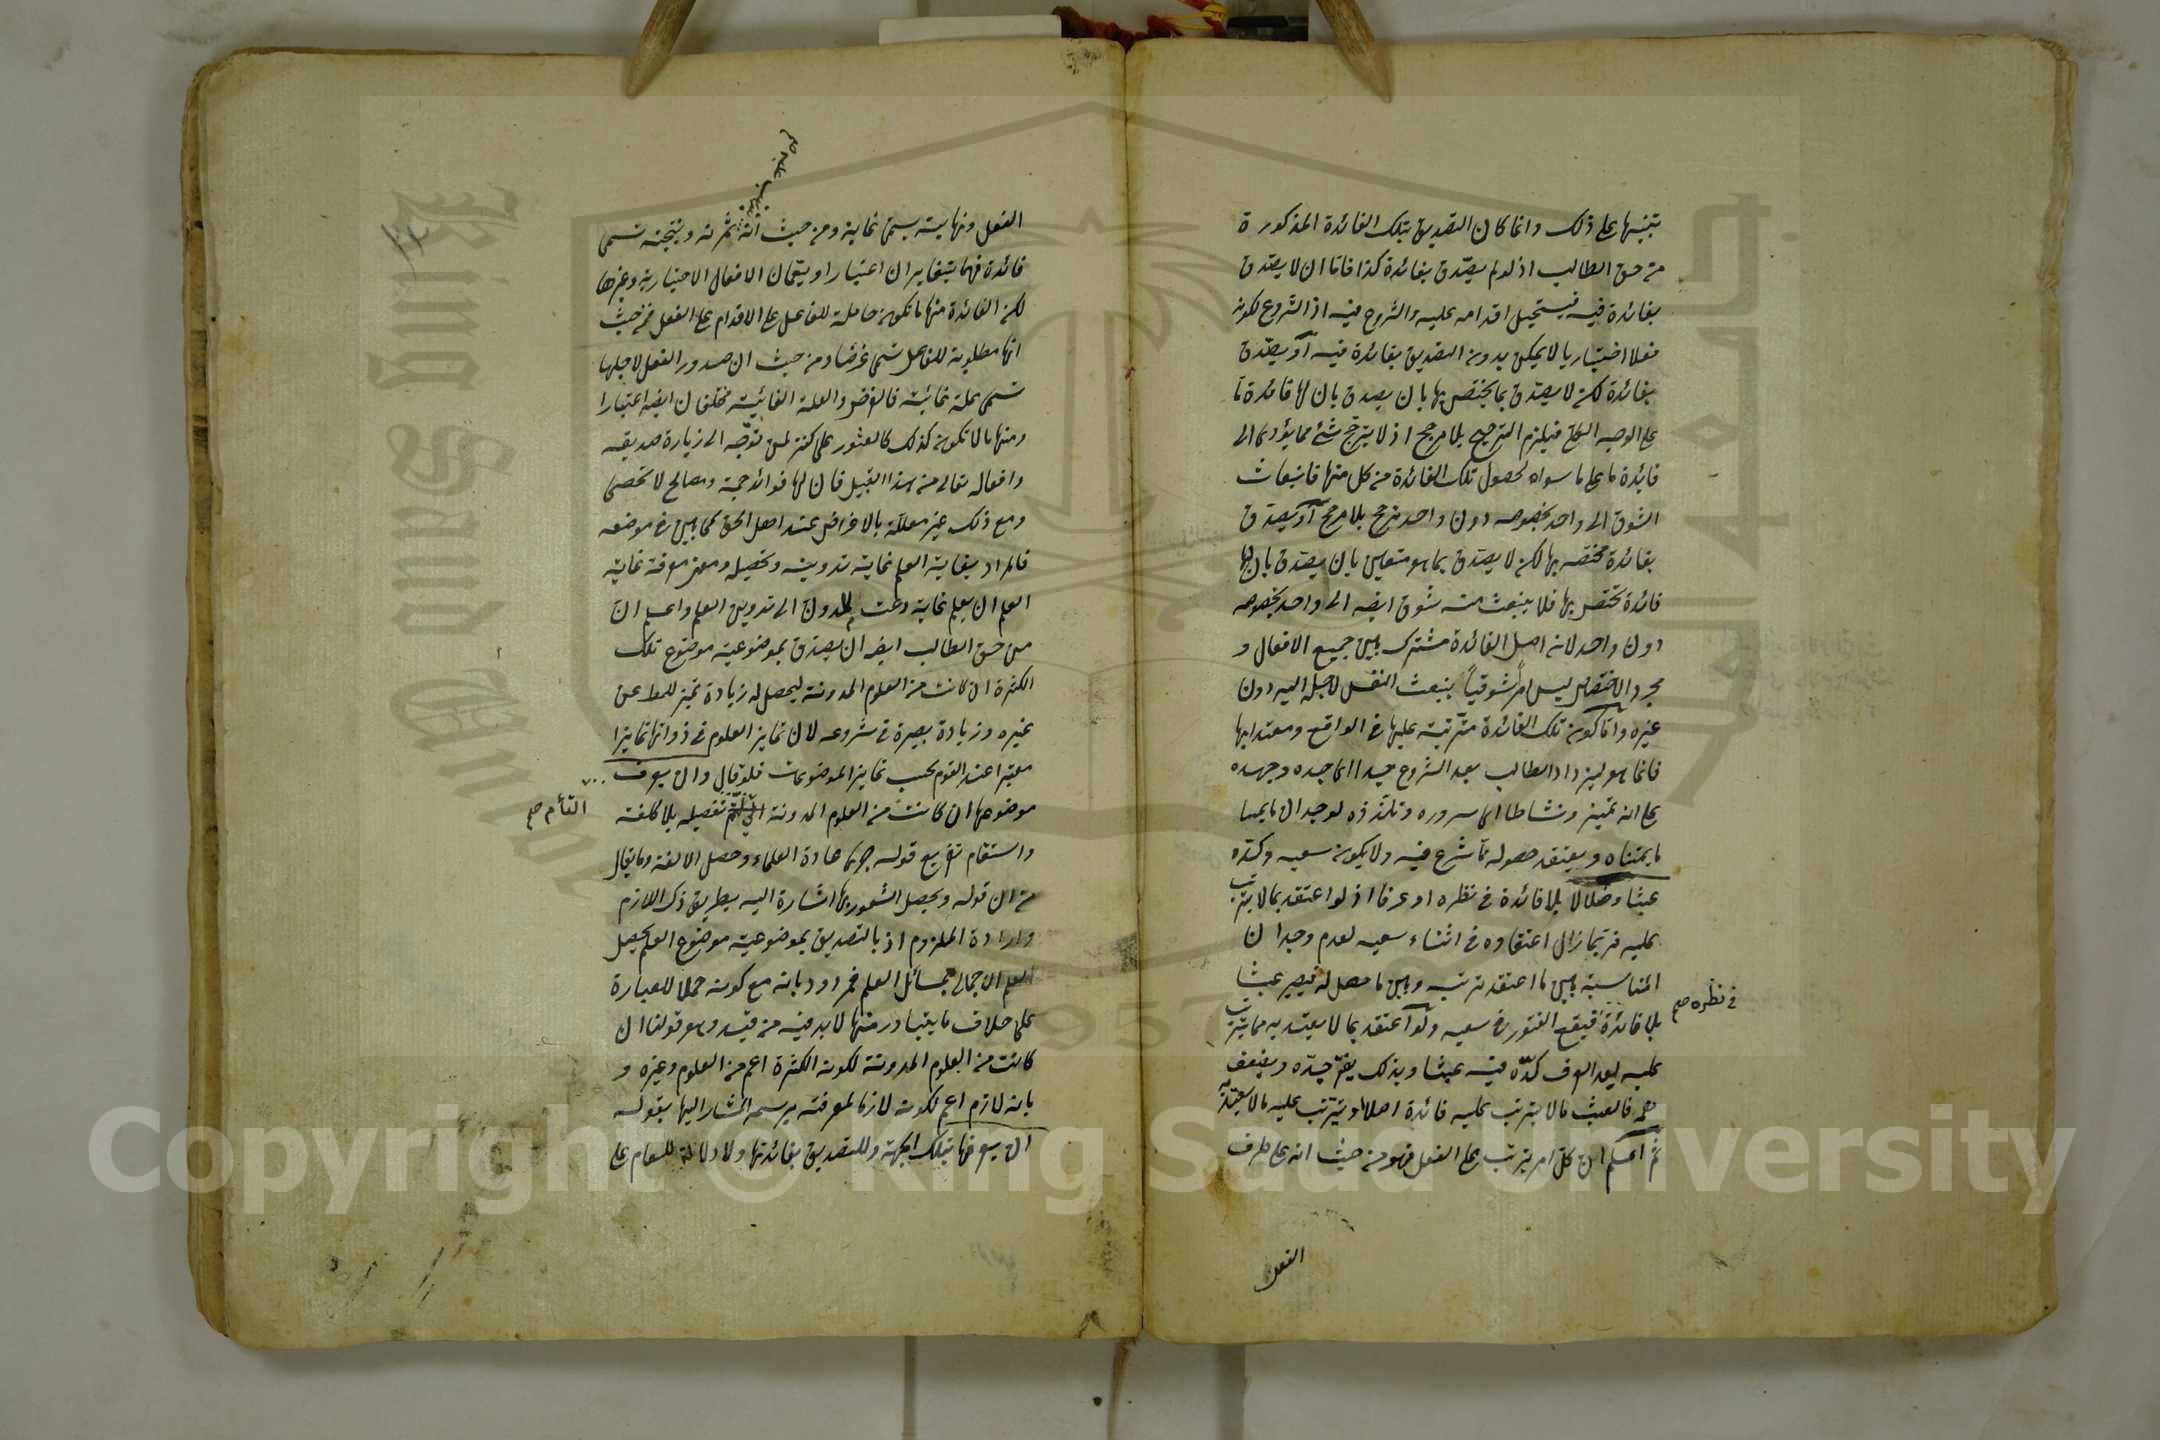 تنبيها على ذلك وانما كان التصديق بتلك الفائدة المذكورة
من حق الطالب اذ لو لم يصدق بفائدة كذا فاما ان لا يصدق
بفائدة فيه فيستحيل اقدامه عليه والشروع فيه اذ الشروع لكونه
فعلا اختياريا لا يمكن بدون التصديق بفائدة فيه او يصدق
بفائدة لكن لا يصدق بما يختص بها بان يصدق بان لها فائدة ما
على الوجه الكلى فيلزم الترجيح بلا مرجح اذ لا يترجح شئ مما يؤدى الى
فائدة ما على ما سواه لحصول تلك الفائدة من كل منها فانبعاث
الشوق الى واحد بخصوصه دون واحد ترجح بلا مرجح او يصدق
بفائدة مختصه بها لكن لا يصدق بما هو متعين بان يصدق بان لها
فائدة تختص بها فلا ينبعث منه شوق ايضه الى واحد بخصوصه
دون واحد لان اصل الفائدة مشترك بين جميع الافعال و
مجرد الاختصاص ليس امرا شوقيا ينبعث النفس لاجله اليه دون
غيره واما كون تلك الفائدة مترتبة عليها فى الواقع ومعتدا بها
فانما هو ليزداد الطالب بعد الشروع جدا الى جده وجهده
ونشاطا الى سروره وتلذذه لوجدان
ما يتمناه ويعتقد حصوله مما شرع فيه ولا يكون سعيه وكده
عبثا وضلالا بلا فائدة فى نظره او عرفا اذ لو اعتقد بما لا يترتب
عليه فربما زال اعتقاده فى اثناء سعيه لعدم وجدان
المناسبة بين ما اعتقد ترتبه وبين ما حصل له فيصير عبثا
فى نظره صح
بلا فائدة فيقع الفتور فى سعيه ولو اعتقد بما لا يعتد به مما يترتب
عليه ليعد العرف كده فيه عبثا وبذلك يفتر جده ويضعف
فالعبث ما لا يترتب عليه فائدة اصلا او يترتب عليه ما لا يعتد به
ثم اعلم ان كل امر يترتب على الفعل فهو من حيث انه على طرف
الفعل
الفعل ونهايته يسمى غاية ومن حيث انه ثمرته ونتيجته تسمى
فائدة فهما يتغايران اعتبارا ويعمان الافعال الاختيارية وغيرها
لكن الفائدة منها ما تكون حاملة للفاعل على الاقدام على الفعل فمن حيث
انها مطلوبة للفاعل تسمى غرضا ومن حيث ان صدور الفعل لاجلها
تسمى علة غائية فالغرض والعلة الغائية مختلفان ايضه اعتبارا
ومنها ما لا تكون كذلك كالعثور على كنز لمن توجه الى زيارة صديقه
وافعاله تعالى من هذا القبيل فان لها فوائد جمة ومصالح لا تحصى
ومع ذلك غير معللة بالاغراض عند اهل الحق كما بين فى موضعه
فالمراد بغاية العلم غاية تدوينه وتحصيله ومعنى معرفة غاية
العلم ان يعلم غاية دعت المدون الى تدوين العلم واعلم ان
من حق الطالب ايضه ان يصدق بموضوعية موضوع تلك
الكثرة ان كانت من العلوم المدونة ليحصل له زيادة تميز للمط عن
غيره وزيادة بصيرة فى شروعه لان تمايز العلوم فى ذواتها تمايزا
معتبرا عند القوم بحسب تمايز الموضوعات فلو قال وان يعرف
موضوعها ان كانت من العلوم المدونة تفصيله بلا كلفة
التأم صح
واستقام تفريع قوله جرت عادة العلماء وحصل الالفة وما يقال
من ان قوله ويحصل الشعور بها اشارة اليه بطريق ذكر اللازم
وارادة الملزوم اذ بالتصديق بموضوعية موضوع العلم يحصل
العلم الاجمالى بمسائل العلم فمردود بانه مع كونه حملا للعبارة
على خلاف ما يتبادر منها لا بد فيه من قيد وهو قولنا ان
كانت من العلوم المدونة لكون الكثرة اعم من العلوم وغيره و
بانه لازم اعم لكونه لازما لمعرفته برسمه المشار اليها بقوله
ان يعرفها بتلك الجهة وللتصديق بفائدتها ولا دلالة للعام على
King Saud University
1957
Copyright © King Saud University